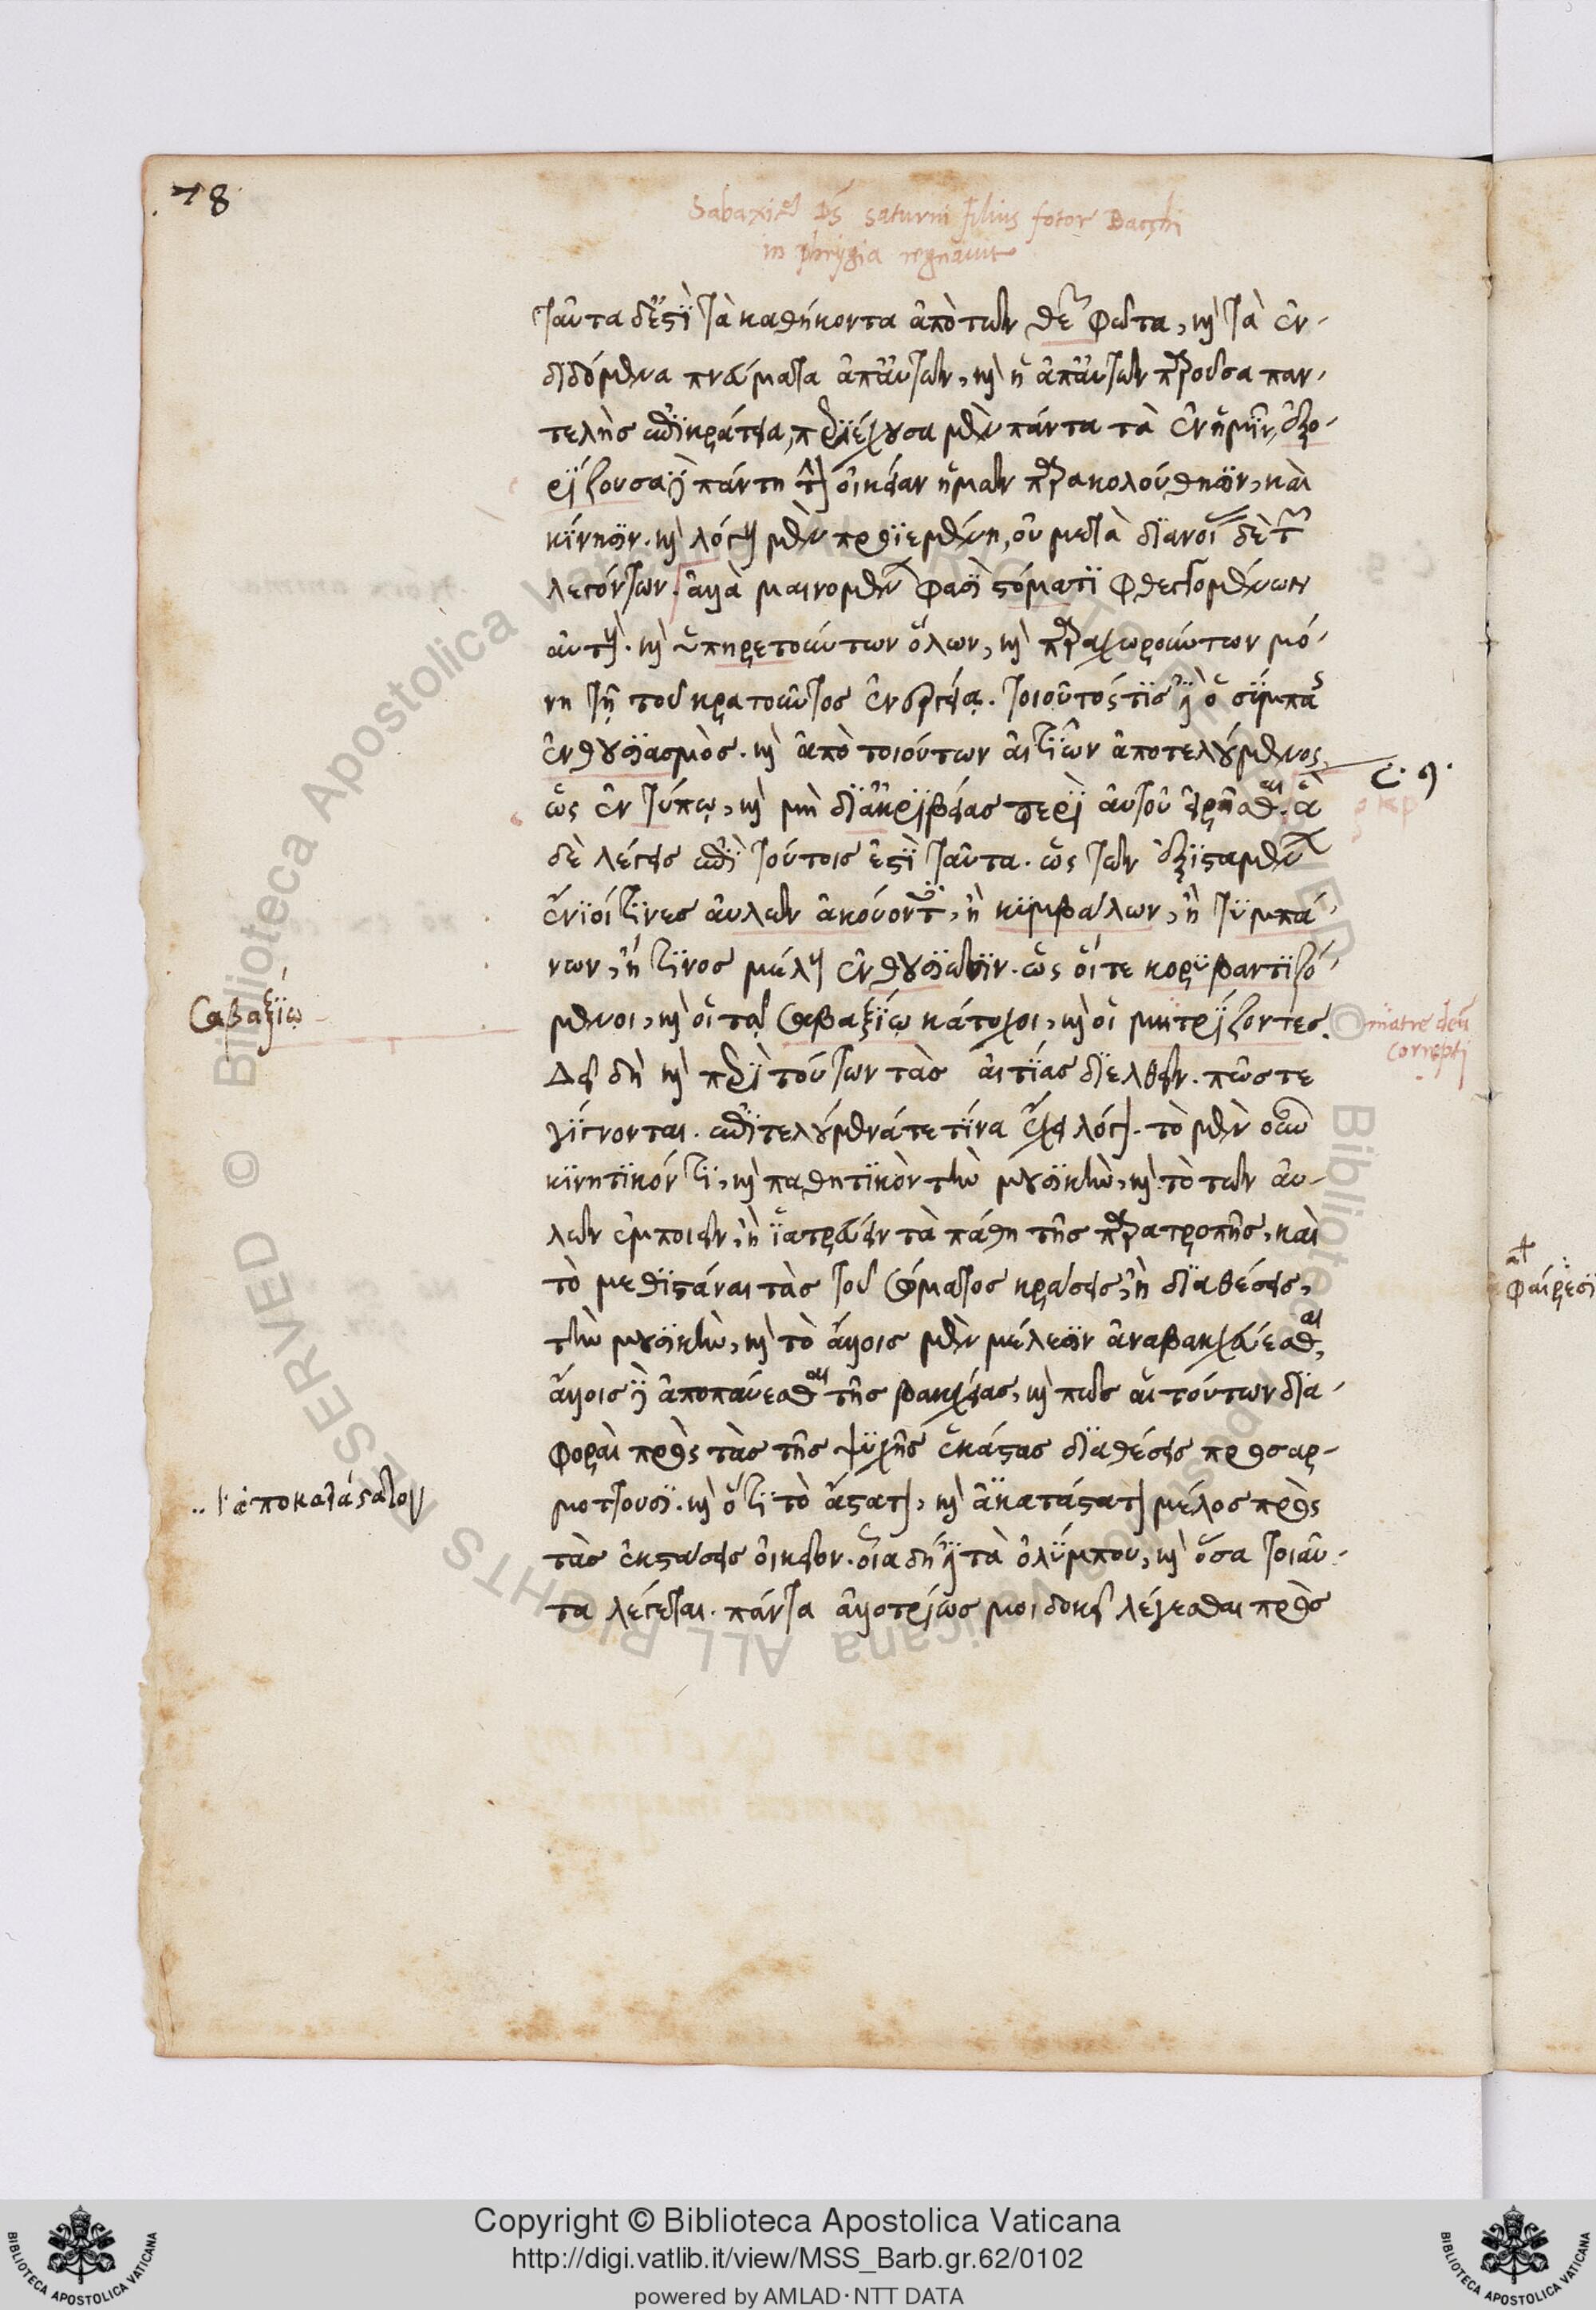 78
Sabaxi9 Ds saturni filius fotor Bacchi
in phrygia regnavit
ταῦτα δ' ἐστὶ τὰ καθήκοντα ἀπὸ τῶν θεῶν φῶτα, καὶ τὰ ἐν-
διδόμενα πνεύματα ἀπ' αὐτῶν, καὶ ἡ ἀπ' αὐτῶν παροῦσα παν-
τελὴς ἐπικράτεια, περιέχουσα μὲν πάντα τὰ ἐν ἡμῖν, ἐξο-
ρίζουσα δὲ πάντῃ τὴν οἰκείαν ἡμῶν παρακολούθησιν, καὶ
κίνησιν. καὶ λόγους μὲν προϊεμένη, οὐ μετὰ διανοίας δὲ τῶν
λεγόντων. ἀλλὰ μαινομένῳ φασὶ στόματι φθεγγομένων
αὐτούς. καὶ ὑπηρετούντων ὅλων, καὶ παραχωρούντων μό-
νῃ τῇ τοῦ κρατοῦντος ἐνεργείᾳ. τοιοῦτός τις καὶ ὁ σύμπας
ἐνθουσιασμὸς. καὶ ἀπὸ τοιούτων αἰτιῶν ἀποτελούμενος,
ὡς ἐν τύπῳ, καὶ μὴ δι' ἀκριβείας περὶ αὐτοῦ εἰρῆσθαι. ἃ
δὲ λέγεις ἐπὶ τούτοις ἐστὶ ταῦτα. ὡς τῶν ἐξισταμένων
ἔνιοί τινες αὐλῶν ἀκούοντες, ἢ κυμβάλων, ἢ τυμπά-
νων, ἤ τινος μέλους ἐνθουσιῶσιν. ὡς οἵ τε κορυβαντιζό-
μενοι, καὶ οἱ τῷ Σαβαξίῳ κάτοχοι, καὶ οἱ μητρίζοντες.
Δεῖ δὴ καὶ περὶ τούτων τὰς αἰτίας διελθεῖν. πῶς τε
γίγνονται. ἐπιτελούμενά τε τίνα ἔχει λόγον. τὸ μὲν οὖν
κινητικόν τι, καὶ παθητικὸν τὴν μουσικὴν, καὶ τὸ τῶν αὐ-
λῶν ἐμποιεῖν, ἢ ἰατρεύειν τὰ πάθη τῆς παρατροπῆς, καὶ
τὸ μεθιστάναι τὰς τοῦ σώματος κράσεις, ἢ διαθέσεις,
τὴν μουσικὴν, καὶ τὸ ἄλλοις μὲν μέλεσιν ἀναβακχεύεσθαι,
ἄλλοις δὲ ἀποπαύεσθαι τῆς βακχείας, καὶ πῶς αἱ τούτων δια-
φοραὶ πρὸς τὰς τῆς ψυχῆς ἑκάστας διαθέσεις προσαρ-
μόττουσι. καὶ ὅτι τὸ ἄστατον, καὶ ἀκατάστατον μέλος πρὸς
τὰς ἐκστάσεις οἰκεῖον. οἷα δή ἐστι τὰ ὀλύμπου, καὶ ὅσα τοιαῦ-
τα λέγεται. πάντα ἀλλοτρίως μοι δοκεῖ λέγεσθαι πρὸς
c. 9.
Σαβαξίω
matre deū
correpti
ἀποκατάστατον
Copyright © Biblioteca Apostolica Vaticana
http://digi.vatlib.it/view/MSS_Barb.gr.62/0102
powered by AMLAD·NTT DATA